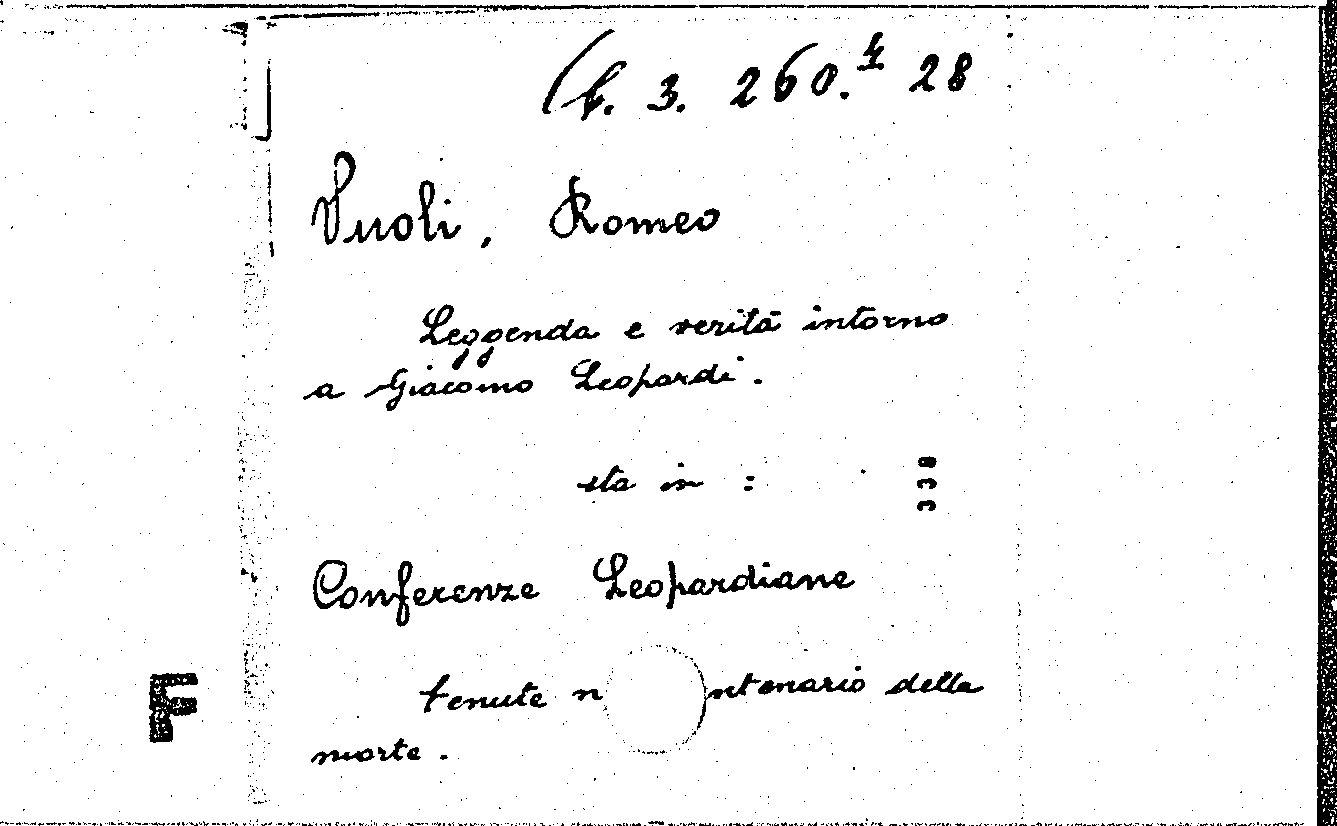 3. 260. 28
Vuoli, Romeo
Leggenda e verità intorno
a Giacomo Leopardi.
sta in :
Conferenze Leopardiane
tenute n ntenario della
morte.
F